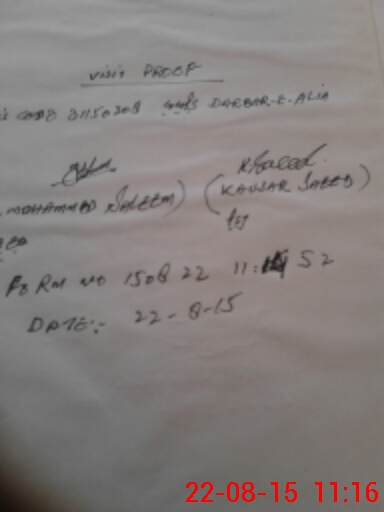 VISIT PROOF
CODE 31150308 DARBAR-E-ALIA
MOHAMMED SALEEM) (KAUSAR SAEED)
FORM NO 1508 22 11: 52
DATE:- 22-8-15
22-08-15 11:16